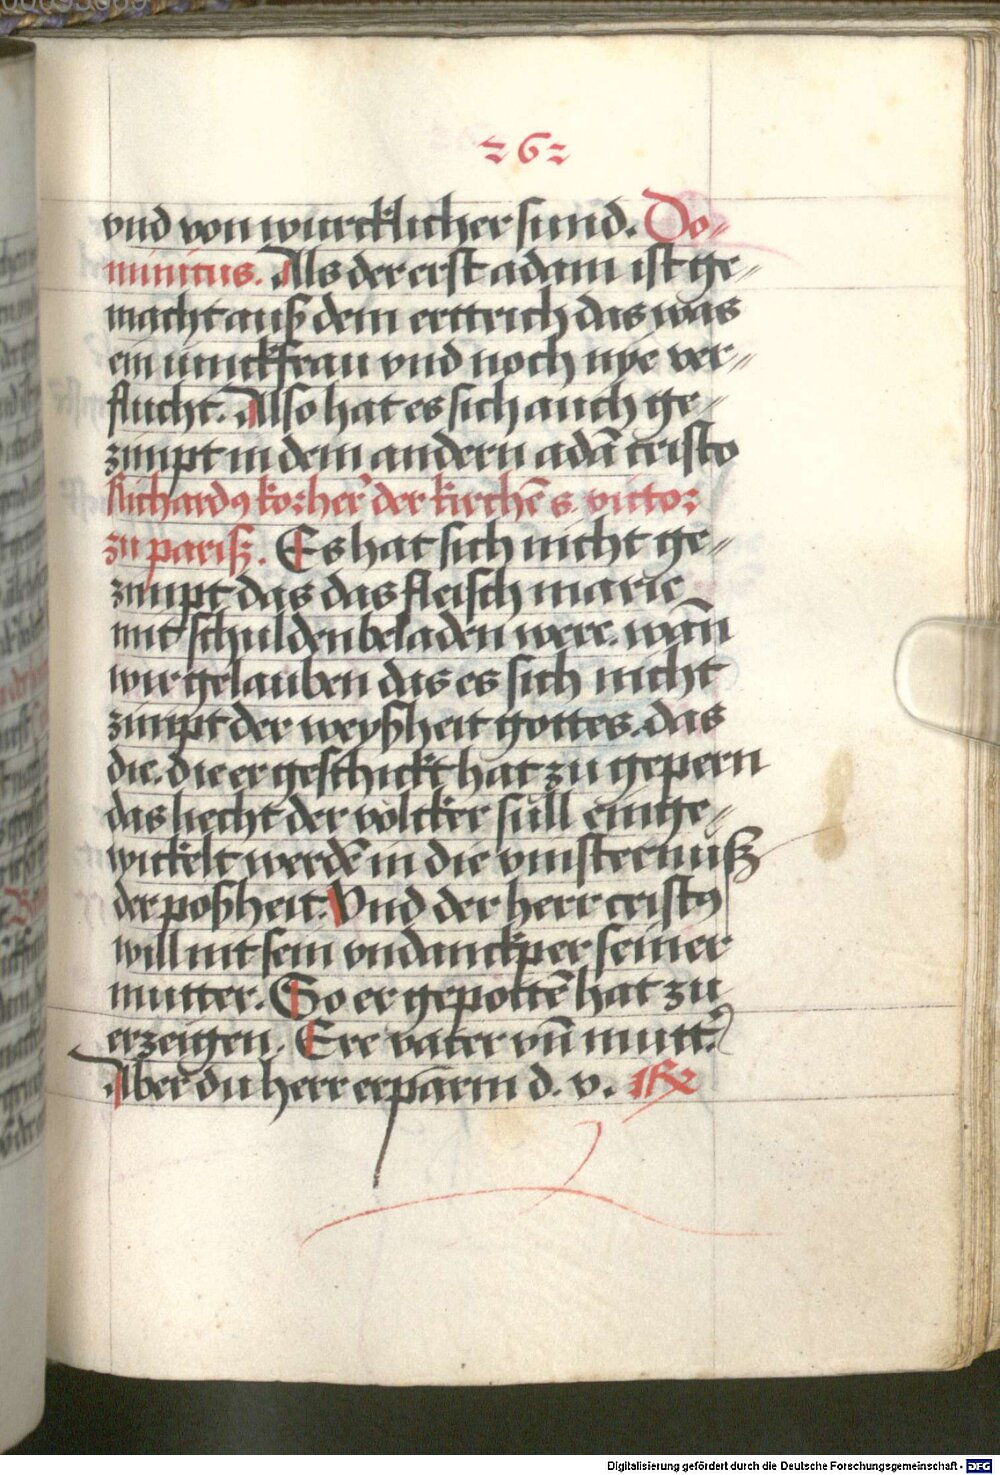 262
vnd von wurcklicher sund. Do-
minicus. Als der erst adam ist ge-
macht auß dem ertrich das was
ein iunckfrau vnd noch nye ver-
flucht. Also hat es sich auch ge-
zimpt in dem andern adā cristo
Richardꝯ korher der kirchē s. victor
zu pariß. Es hat sich nicht ge-
zimpt das das fleisch marie
mit schulden beladen were. wān
wir gelauben das es sich nicht
zimpt der weyßheit gottes. das
die. die er geschickt hat zu gepern
das liecht der völcker süll einge-
wickelt werdē in die vinsternuß
der poßheit. Vnd der herr cristꝯ
will nit sein vndanckper seiner
mutter. So er gepottē hat zu
erzeigen. Ere vater vn̄ mutt.
Aber du herr erparm d. v.
Digitalisierung gefördert durch die Deutsche Forschungsgemeinschaft - DFG